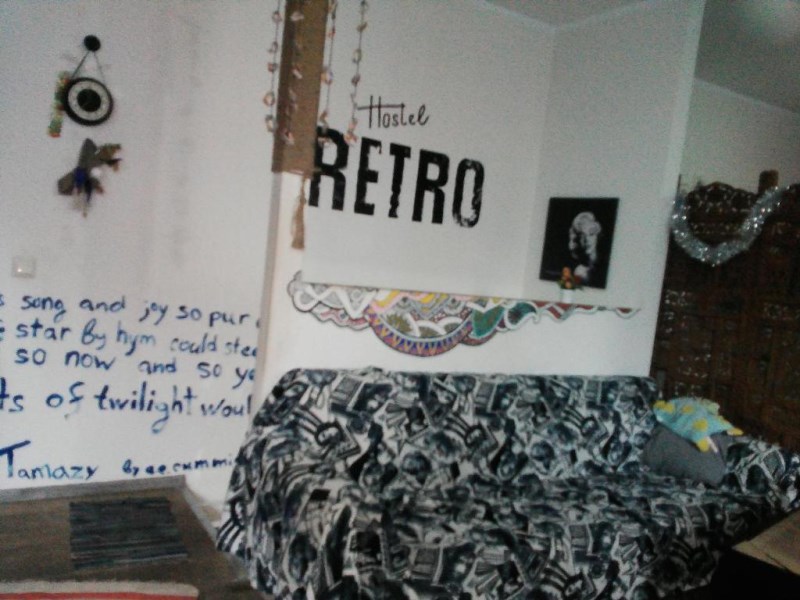 Hostel
RETRO
song and joy so pur
star By hym could stee
so now and so ye
ts of twilight woul
Tamazy By ee.cummi